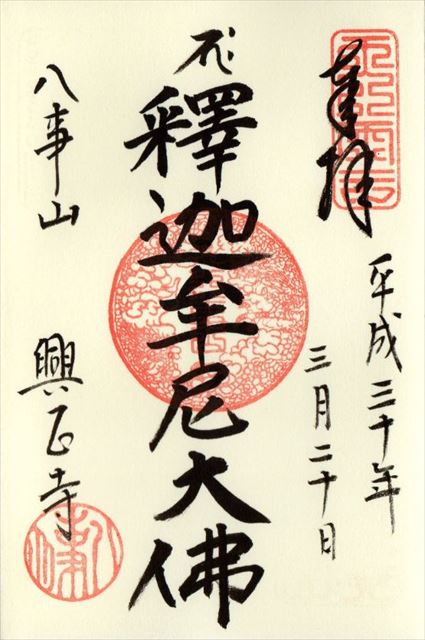 奉拝
平成三十年
三月二十日
釋迦牟尼大佛
八事山
興正寺